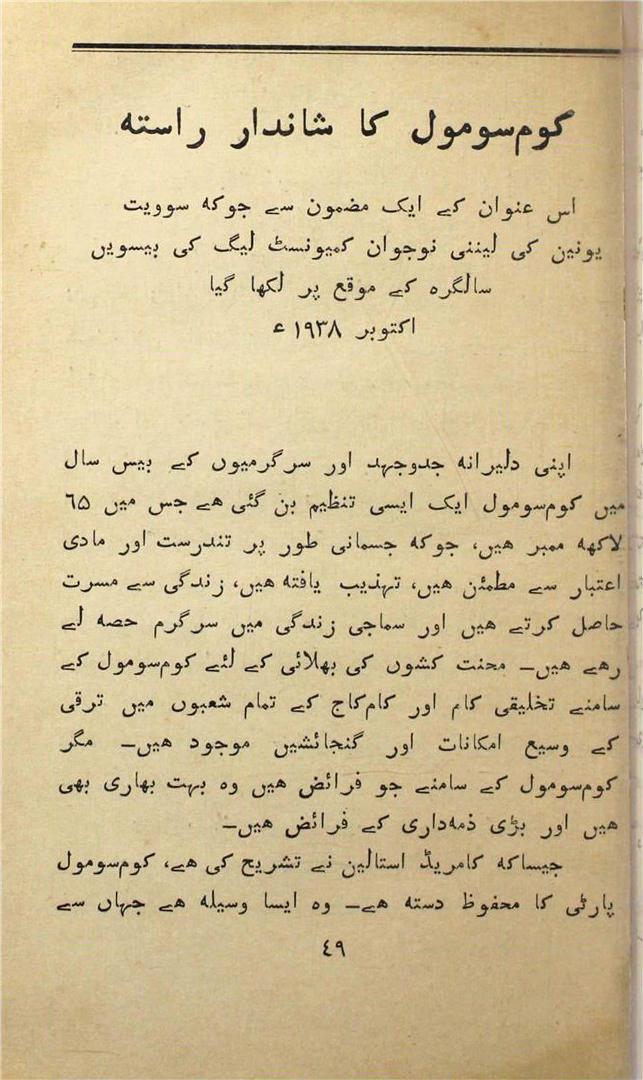 کوم‌سومول کا شاندار راسته
اس عنوان کے ایک مضمون سے جوکه سوویت
یونین کی لیننی نوجوان کمیونسٹ لیگ کی بیسویں
سالگره کے موقع پر لکھا گیا
اکتوبر ۱۹۳۸ ء
اپنی دلیرانه جدوجہد اور سرگرمیوں کے بیس سال
میں کوم‌سومول ایک ایسی تنظیم بن گئی هے جس میں ٦٥
لاکھه ممبر هیں، جوکه جسمانی طور پر تندرست اور مادی
اعتبار سے مطمئن هیں، تہذیب یافته هیں، زندگی سے مسرت
حاصل کرتے هیں اور سماجی زندگی میں سرگرم حصه لے
رهے هیں۔ محنت کشوں کی بھلائی کے لئے کوم‌سومول کے
سامنے تخلیقی کام اور کام‌کاج کے تمام شعبوں میں ترقی
کے وسیع امکانات اور گنجائشیں موجود هیں۔ مگر
کوم‌سومول کے سامنے جو فرائض هیں وه بہت بھاری بھی
هیں اور بڑی ذمه‌داری کے فرائض هیں۔
جیساکه کامریڈ استالین نے تشریح کی هے، کوم‌سومول
پارٹی کا محفوظ دسته هے۔ وه ایسا وسیله هے جہاں سے
٤٩